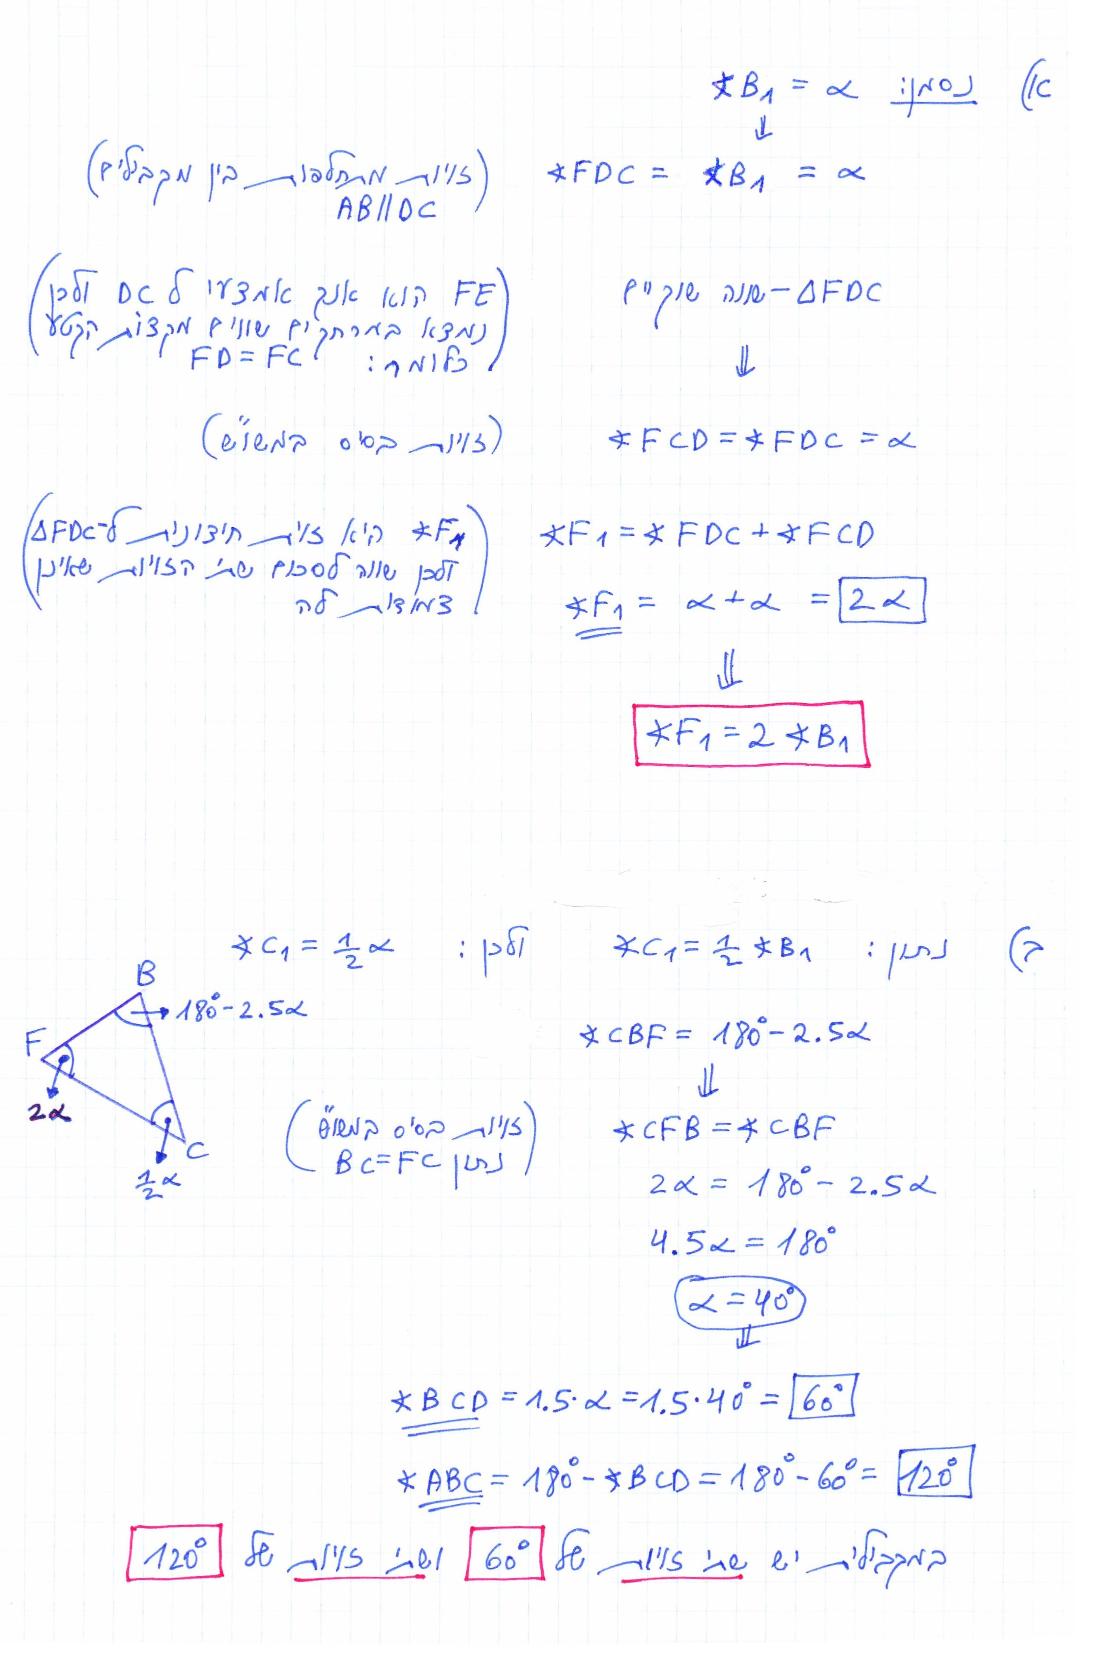 א) נסמן: ∢B₁ = α
⇓
∢FDC = ∢B₁ = α (זוויות מתחלפות בין מקבילים AB∥DC)
ΔFDC – שווה שוקיים
(FE הוא אנך אמצעי ל DC ולכן
נמצא במרחקים שווים מקצות הקטע
כלומר: FD = FC)
⇓
∢FCD = ∢FDC = α (זוויות בסיס במשו"ש)
∢F₁ = ∢FDC + ∢FCD
(∢F₁ היא זוית חיצונית ל-ΔFDC
ולכן שווה לסכום שתי הזויות שאינן
צמודות לה)
∢F₁ = α + α = 2α
⇓
∢F₁ = 2∢B₁
ב) נתון: ∢C₁ = ½∢B₁ ולכן: ∢C₁ = ½α
B
180° - 2.5α
F
2α
C
½α
∢CBF = 180° - 2.5α
⇓
∢CFB = ∢CBF
(זויות בסיס במשו"ש
נתון BC = FC)
2α = 180° - 2.5α
4.5α = 180°
α = 40°
⇓
∢BCD = 1.5·α = 1.5·40° = 60°
∢ABC = 180° - ∢BCD = 180° - 60° = 120°
במקבילית יש שתי זויות של 60° ושתי זויות של 120°